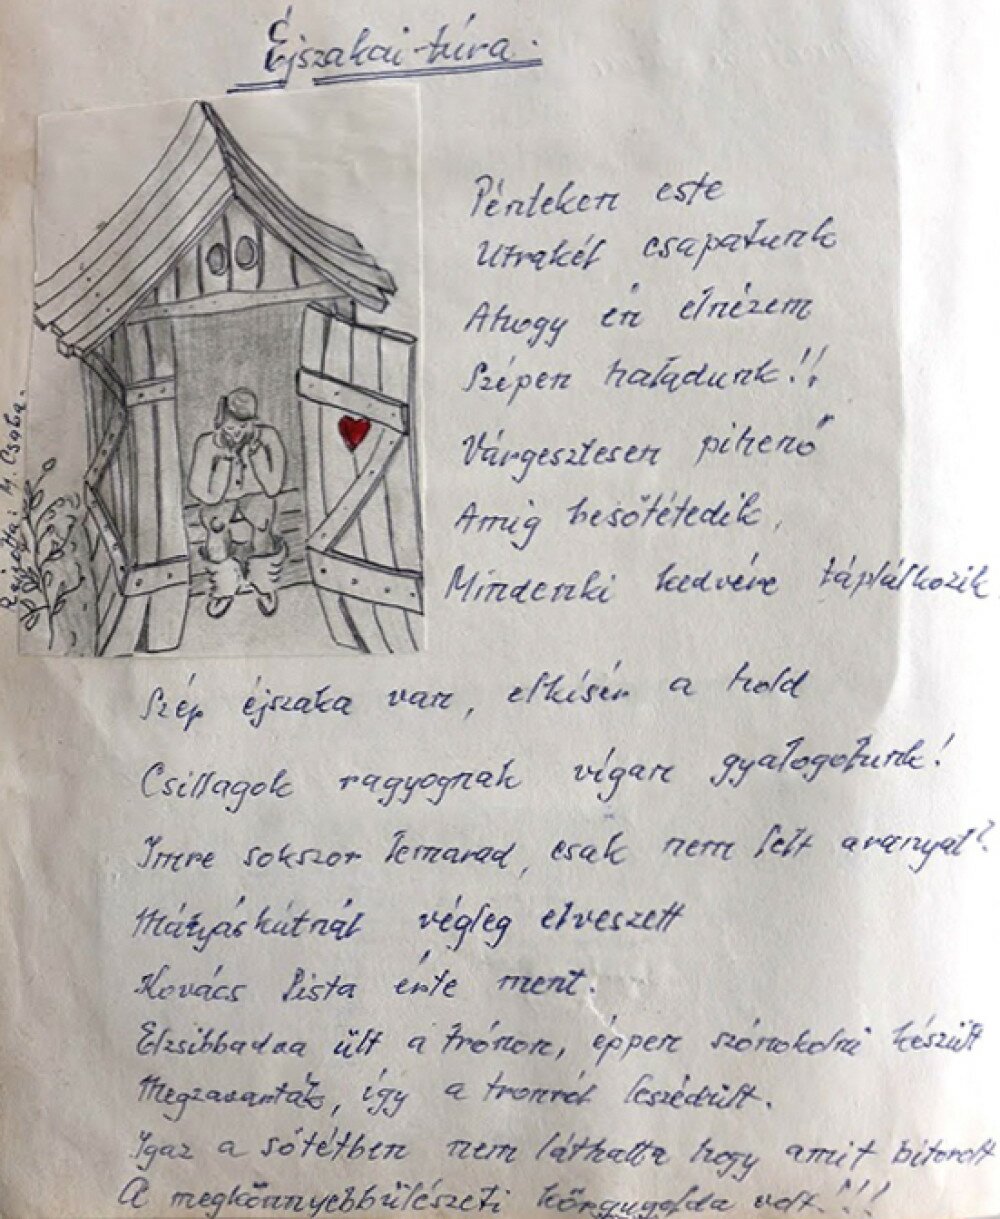 Éjszakai túra.
Pénteken este
Utrakél csapatunk
Ahogy én elnézem
Szépen haladunk!!
Várgesztesen pihenő
Amig besötétedik,
Mindenki kedvére táplálkozik.
Szép éjszaka van, elkisér a hold
Csillagok ragyognak vigan gyalogolunk!
Imre sokszor lemarad, csak nem lelt aranyat?
Mátyáskútnál végleg elveszett
Kovács Pista érte ment.
Elzsibbadva ült a trónon, éppen szónokolni készült
Megzavarták, így a tronról leszédült.
Igaz a sötétben nem láthatta hogy amit bitorolt
A megkönnyebbülészeti körguggolda volt!!!
M. Csaba.